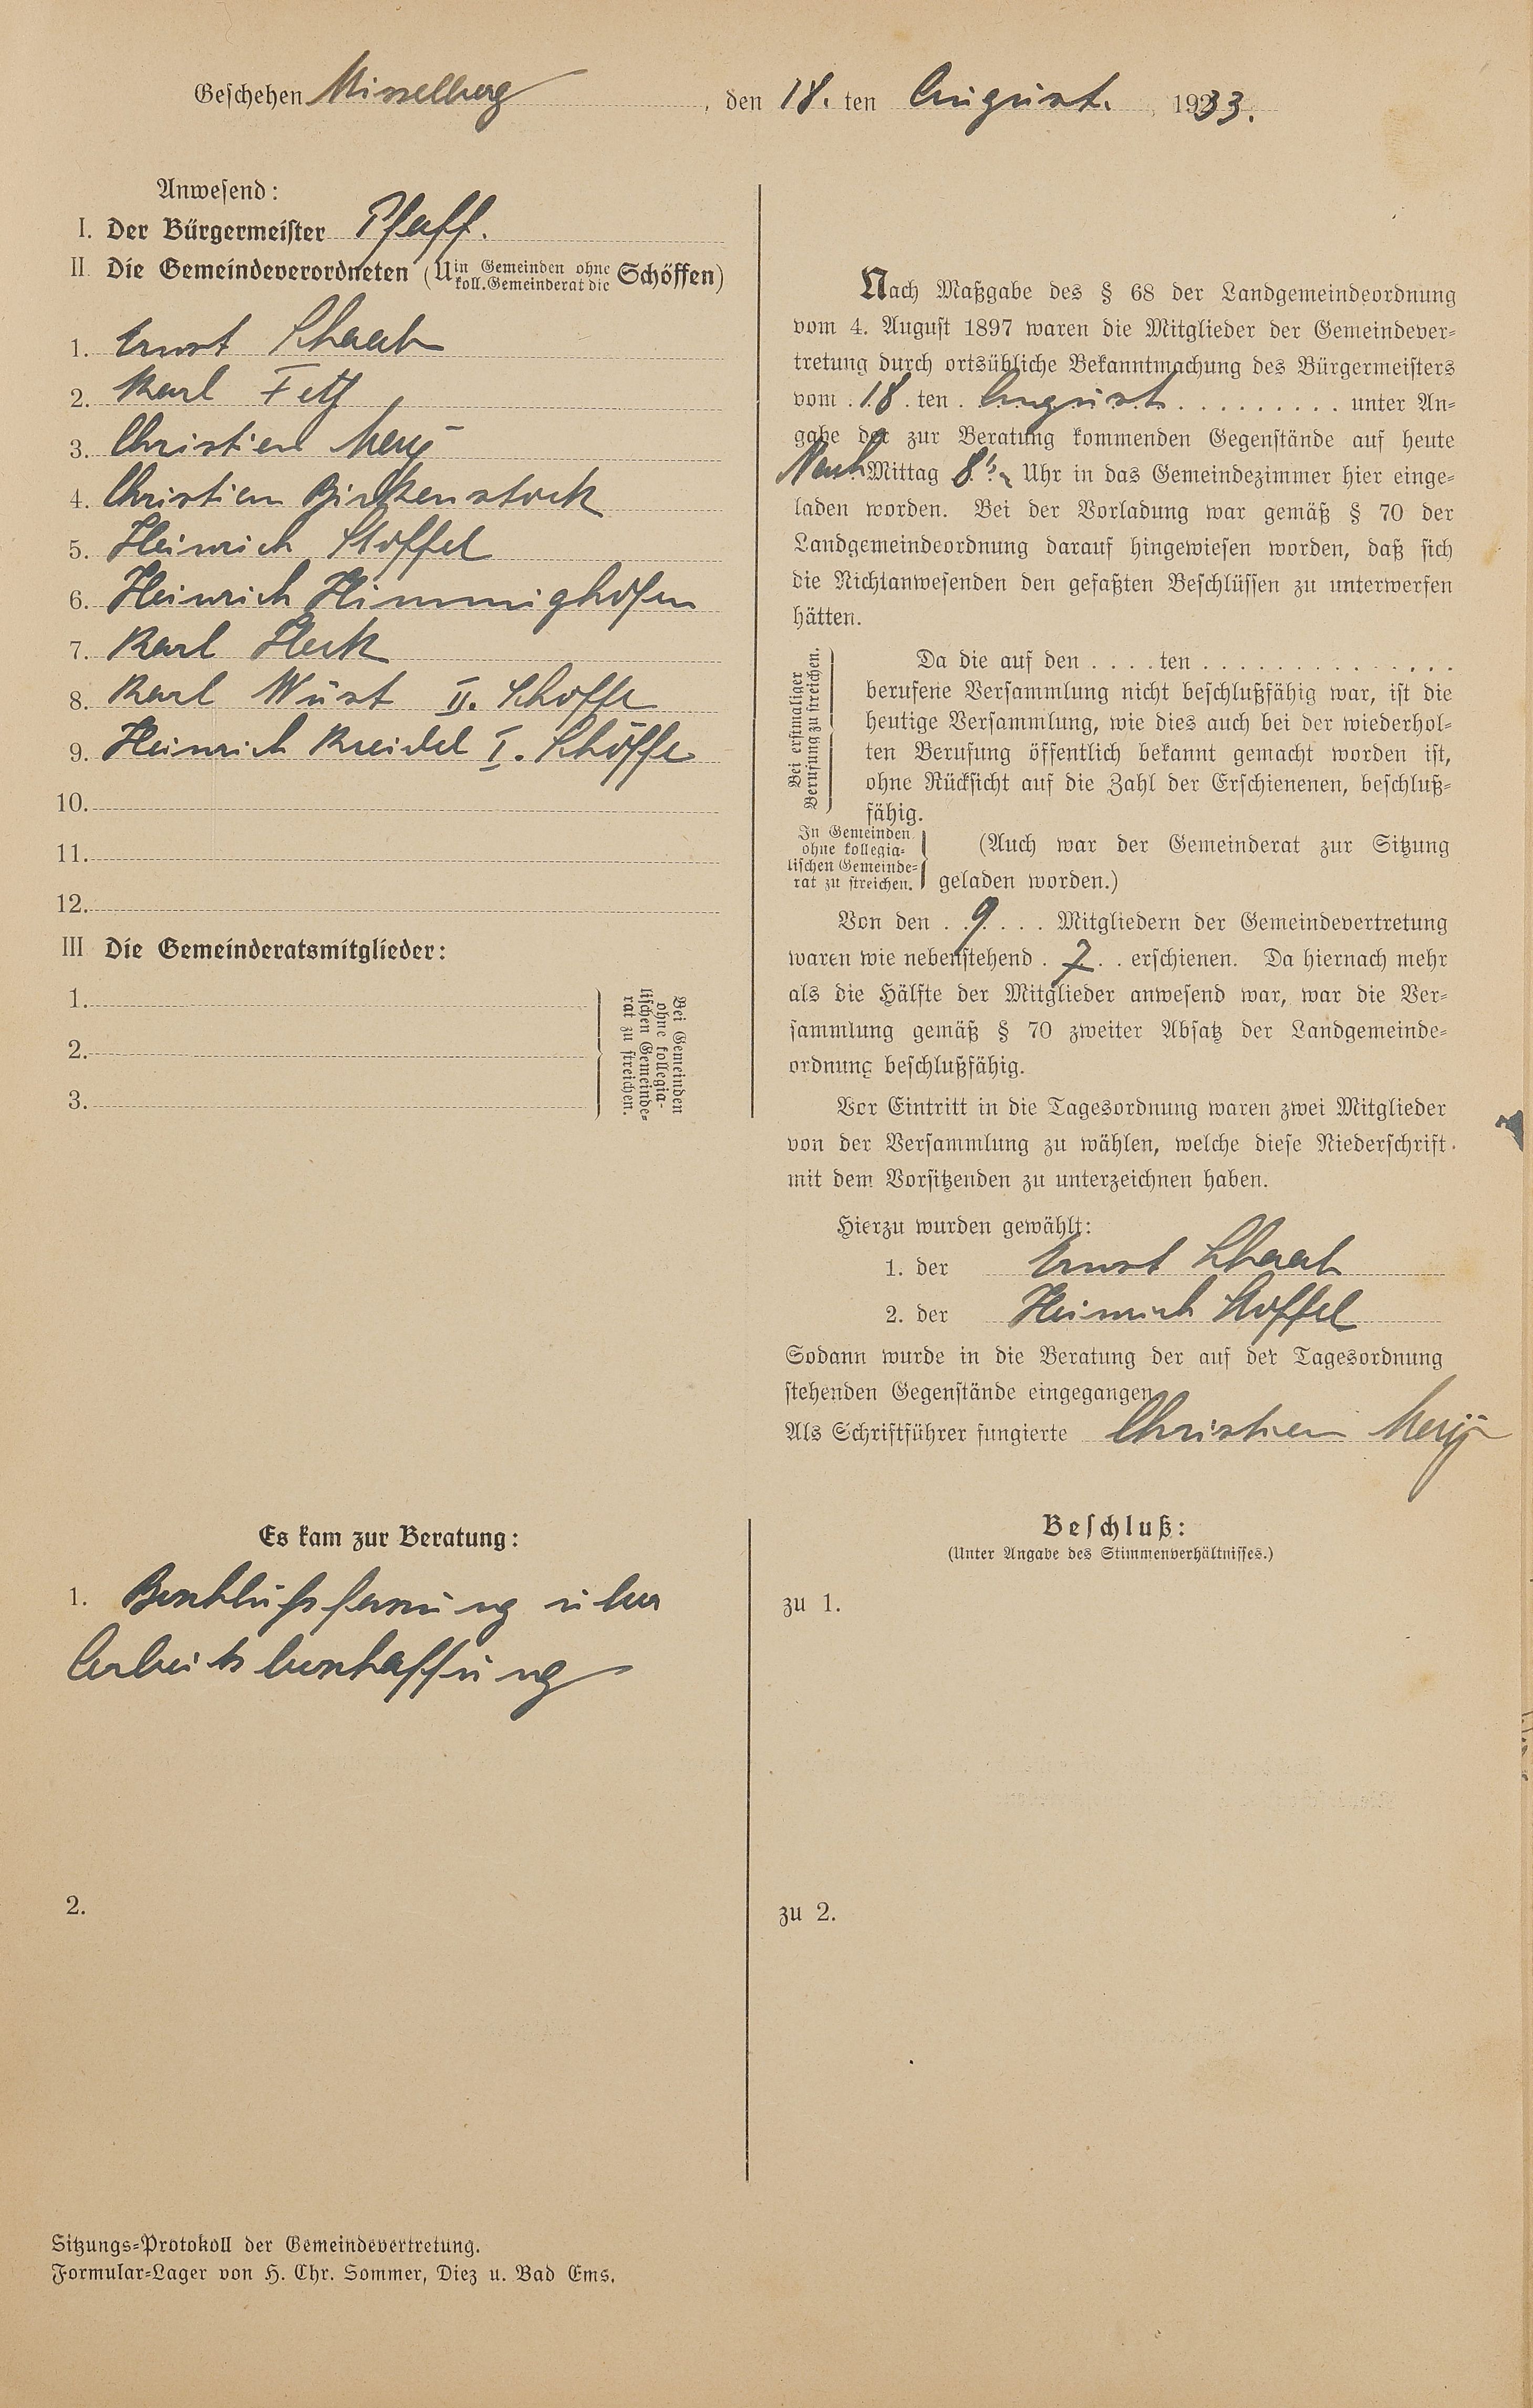 Geschehen Misselberg, den 18. ten August. 1933.
Anwesend:
I. Der Bürgermeister Pfaff.
II. Die Gemeindeverordneten (U in Gemeinden ohne koll. Gemeinderat die Schöffen)
1. Ernst Schaab
2. Karl Fetz
3. Christian
4. Christian Birkenstock
5. Heinrich Stoffel
6. Heinrich Himmighofen
7. Karl Heck
8. Karl Wüst II. Schöffe
9. Heinrich Kreidel I. Schöffe
10.
11.
12.
III Die Gemeinderatsmitglieder:
1.
2.
3.
Bei Gemeinden
ohne kollegia-
lischen Gemeinde-
rat zu streichen.
Nach Maßgabe des § 68 der Landgemeindeordnung
vom 4. August 1897 waren die Mitglieder der Gemeindever-
tretung durch ortsübliche Bekanntmachung des Bürgermeisters
vom 18. ten August unter An-
gabe der zur Beratung kommenden Gegenstände auf heute
Nach Mittag 8 ½ Uhr in das Gemeindezimmer hier einge-
laden worden. Bei der Vorladung war gemäß § 70 der
Landgemeindeordnung darauf hingewiesen worden, daß sich
die Nichtanwesenden den gefaßten Beschlüssen zu unterwerfen
hätten.
Bei erstmaliger
Berufung zu streichen.
Da die auf den . . . . ten . . . . . . . . . . . . . .
berufene Versammlung nicht beschlußfähig war, ist die
heutige Versammlung, wie dies auch bei der wiederhol-
ten Berufung öffentlich bekannt gemacht worden ist,
ohne Rücksicht auf die Zahl der Erschienenen, beschluß-
fähig.
In Gemeinden
ohne kollegia-
lischen Gemeinde-
rat zu streichen.
(Auch war der Gemeinderat zur Sitzung
geladen worden.)
Von den 9 Mitgliedern der Gemeindevertretung
waren wie nebenstehend 7 erschienen. Da hiernach mehr
als die Hälfte der Mitglieder anwesend war, war die Ver-
sammlung gemäß § 70 zweiter Absatz der Landgemeinde-
ordnung beschlußfähig.
Vor Eintritt in die Tagesordnung waren zwei Mitglieder
von der Versammlung zu wählen, welche diese Niederschrift
mit dem Vorsitzenden zu unterzeichnen haben.
Hierzu wurden gewählt:
1. der Ernst Schaab
2. der Heinrich Stoffel
Sodann wurde in die Beratung der auf der Tagesordnung
stehenden Gegenstände eingegangen.
Als Schriftführer fungierte Christian
Es kam zur Beratung:
1. Beschlußfassung über
Arbeitsbeschaffung
2.
Beschluß:
(Unter Angabe des Stimmenverhältnisses.)
zu 1.
zu 2.
Sitzungs-Protokoll der Gemeindevertretung.
Formular-Lager von H. Chr. Sommer, Diez u. Bad Ems.